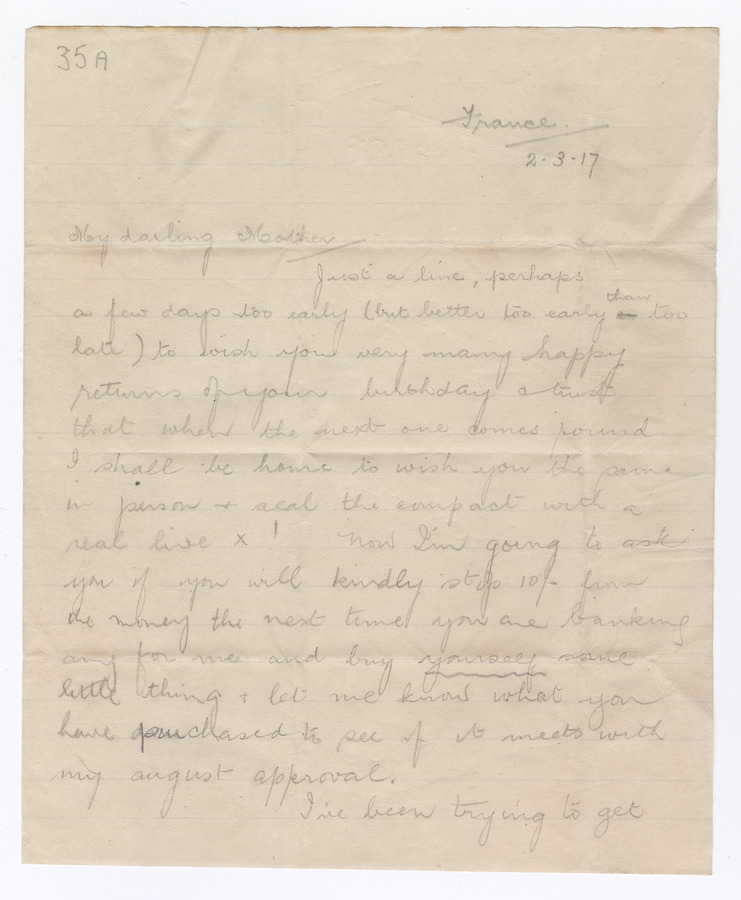 35A
France.
2.3.17
My darling Mother
Just a line, perhaps
a few days too early (but better too early than too
late) to wish you very many happy
returns of your birthday & trust
that when the next one comes round
I shall be home to wish you the same
in person & seal the compact with a
real live x! Now I'm going to ask
you if you will kindly stop 10/- from
the money the next time you are banking
any for me and buy yourself some
little thing & let me know what you
have purchased to see if it meets with
my august approval.
I've been trying to get